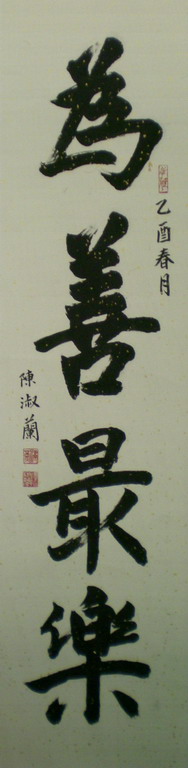 為善最樂
乙酉春月
陳淑蘭